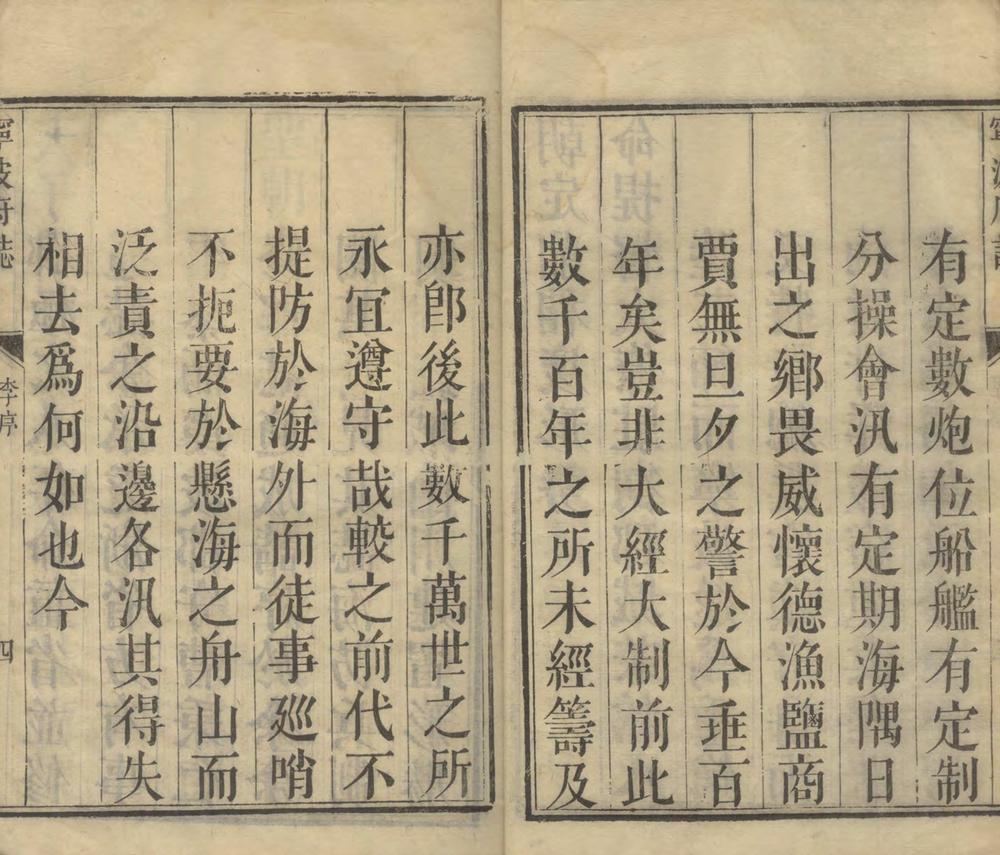 有定數炮位船艦有定制
分操會汛有定期海隅日
出之鄉畏威懷德漁鹽商
賈無旦夕之警於今垂百
年矣豈非大經大制前此
數千百年之所未經籌及
亦卽後此數千萬世之所
永宜遵守哉較之前代不
提防於海外而徒事廵哨
不扼要於懸海之舟山而
泛責之沿邊各汛其得失
相去爲何如也今
寧波府誌
李序
四